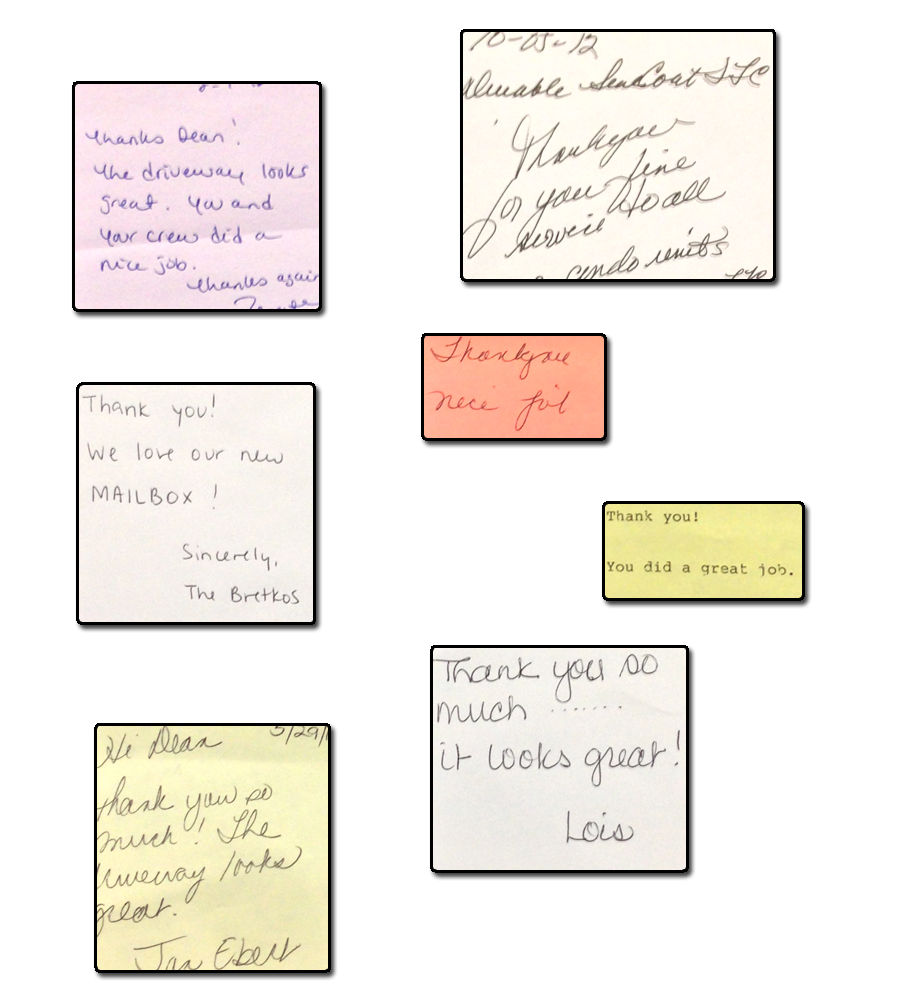 thanks Dean!
the driveway looks
great. you and
your crew did a
nice job.
thanks again
10-05-12
SealCoat LLC
Thankyou
for your fine
service to all
condo units
Thankyou
nice job
Thank you!
We love our new
MAILBOX !
Sincerely,
The Bretkos
Thank you!
You did a great job.
Thank you so
much .......
it looks great!
Lois
Hi Dean 5/29/
thank you so
much! The
driveway looks
great.
Jan Ebert